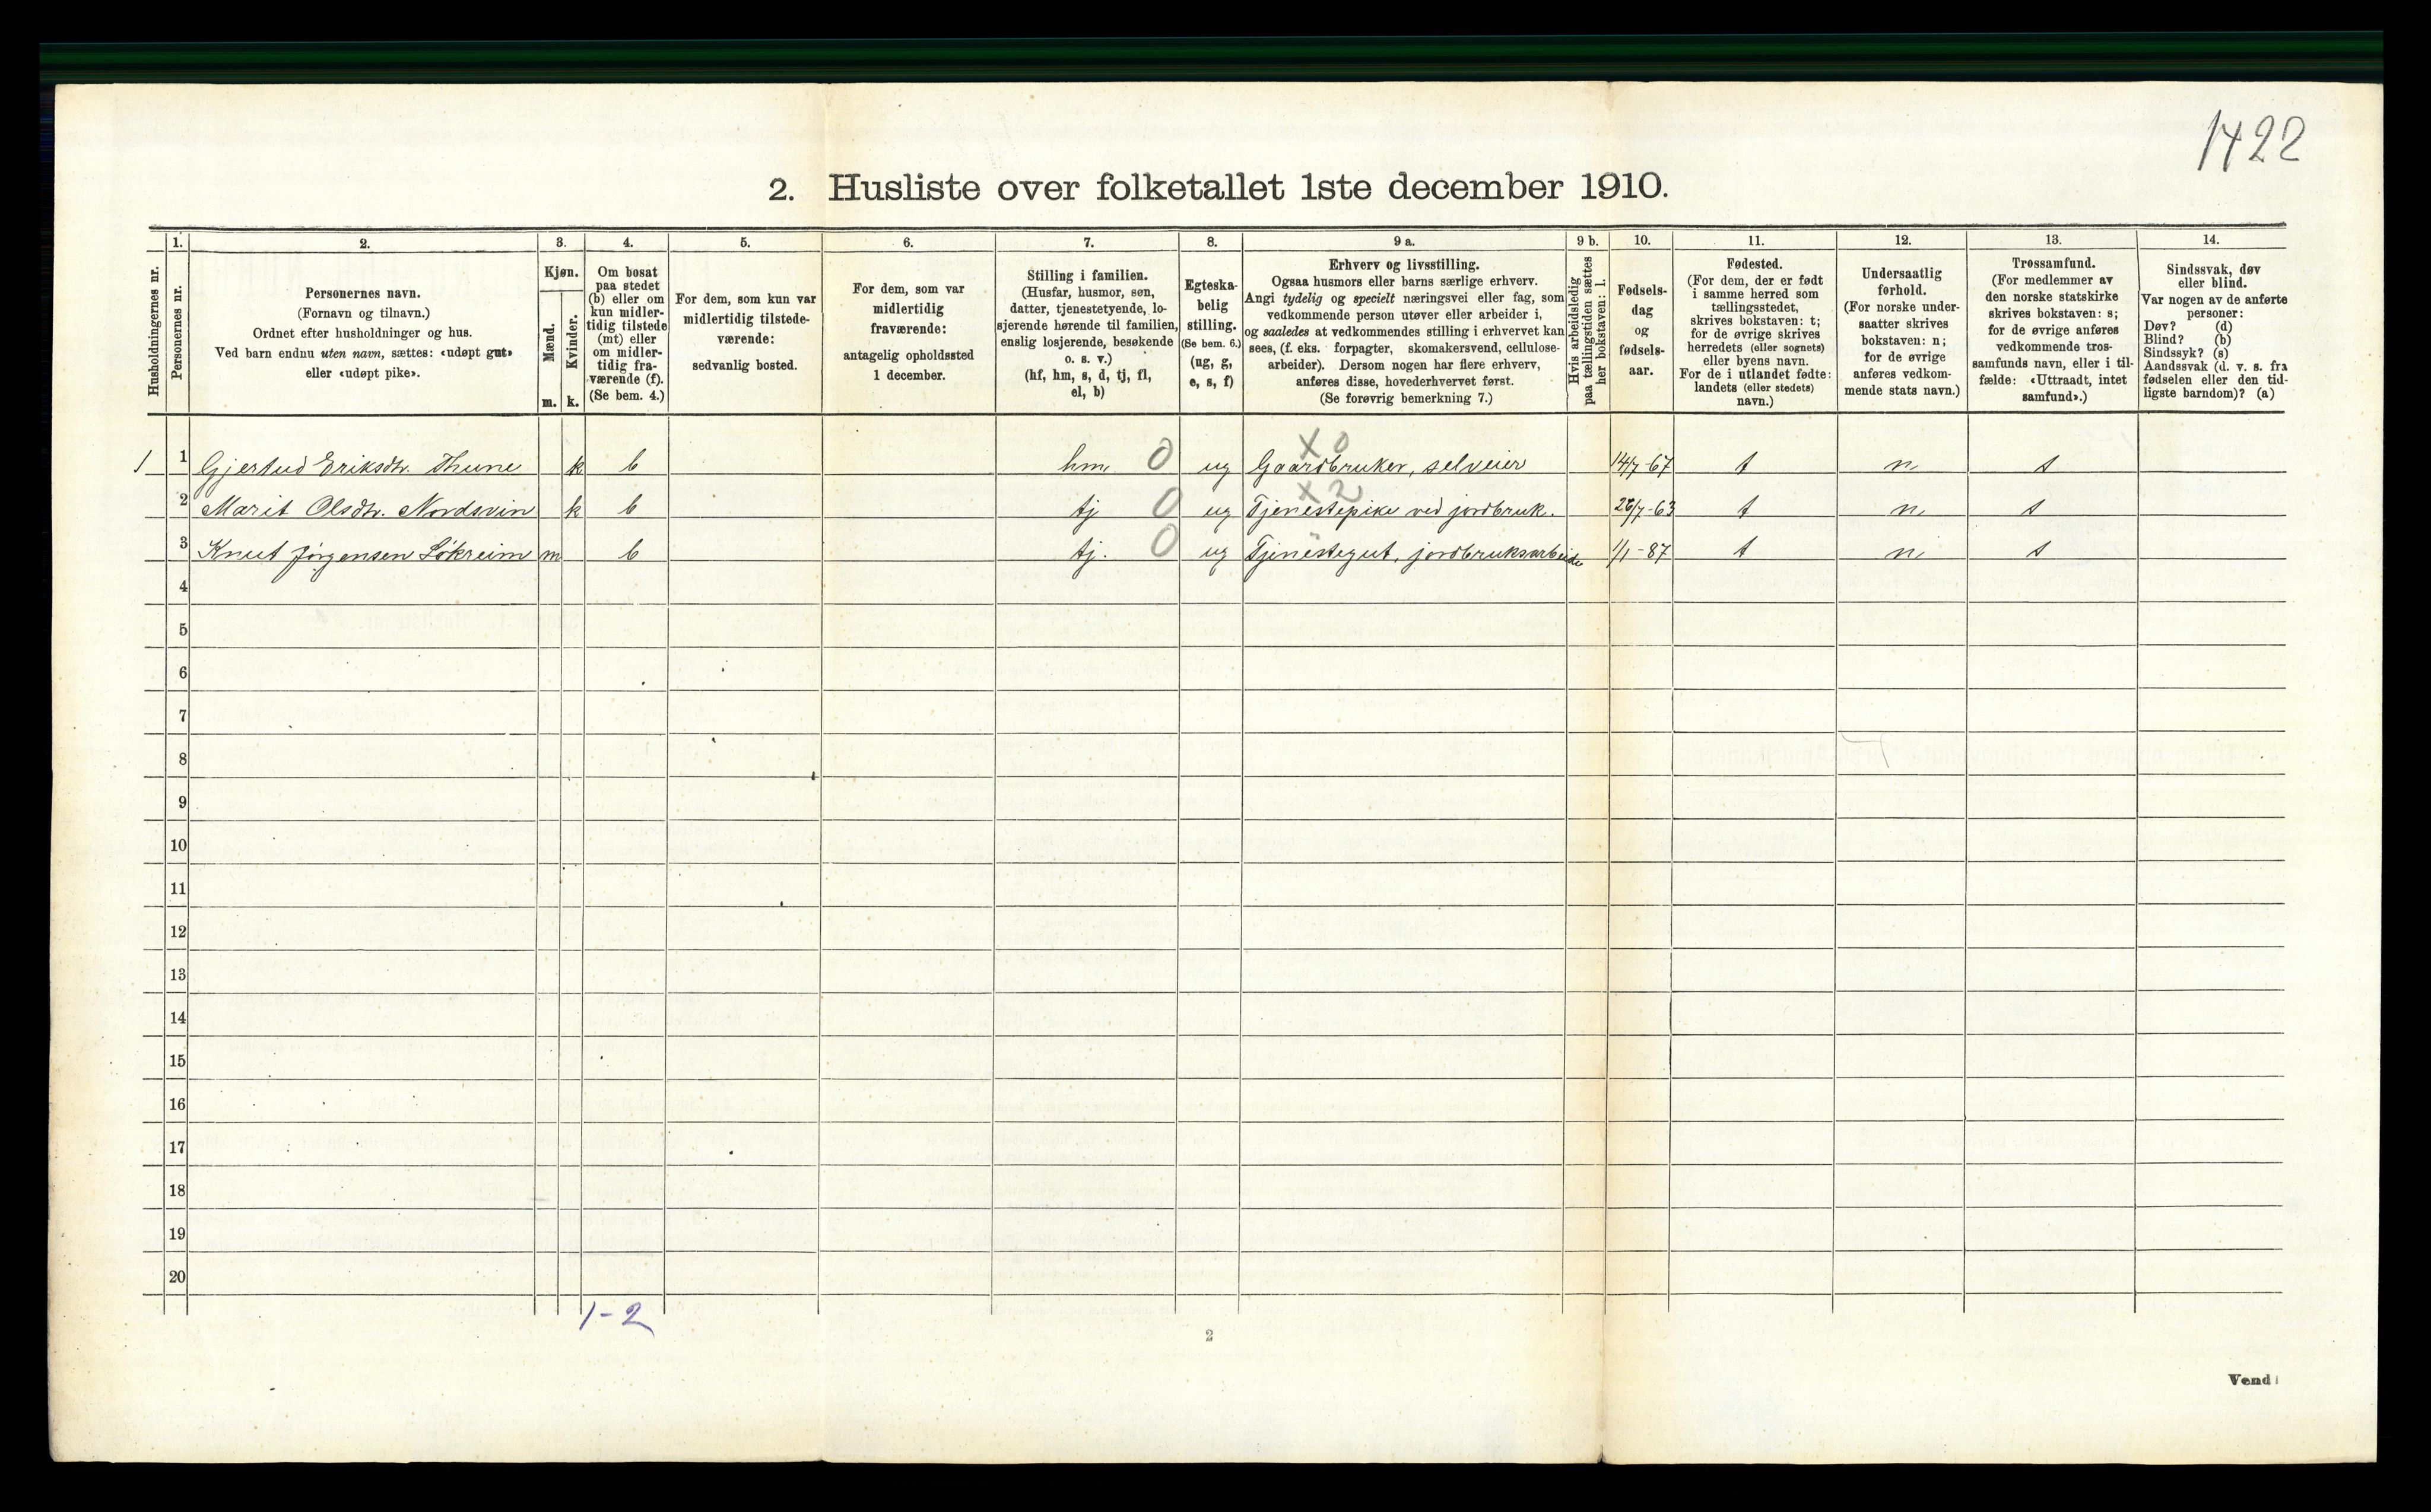 1422
2. Husliste over folketallet 1ste december 1910.
Husholdningernes nr.
1.
Personernes nr.
2.
Personernes navn.
(Fornavn og tilnavn.)
Ordnet efter husholdninger og hus.
Ved barn endnu uten navn, sættes: «udøpt gut»
eller «udøpt pike».
3.
Kjøn.
Mænd.
Kvinder.
m. k.
4.
Om bosat
paa stedet
(b) eller om
kun midler-
tidig tilstede
(mt) eller
om midler-
tidig fra-
værende (f).
(Se bem. 4.)
5.
For dem, som kun var
midlertidig tilstede-
værende:
sedvanlig bosted.
6.
For dem, som var
midlertidig
fraværende:
antagelig opholdssted
1 december.
7.
Stilling i familien.
(Husfar, husmor, søn,
datter, tjenestetyende, lo-
sjerende hørende til familien,
enslig losjerende, besøkende
o. s. v.)
(hf, hm, s, d, tj, fl,
el, b)
8.
Egteska-
belig
stilling.
(Se bem. 6.)
(ug, g,
e, s, f)
9 a.
Erhverv og livsstilling.
Ogsaa husmors eller barns særlige erhverv.
Angi tydelig og specielt næringsvei eller fag, som
vedkommende person utøver eller arbeider i,
og saaledes at vedkommendes stilling i erhvervet kan
sees, (f. eks. forpagter, skomakersvend, cellulose-
arbeider). Dersom nogen har flere erhverv,
anføres disse, hovederhvervet først.
(Se forøvrig bemerkning 7.)
9 b.
Hvis arbeidsledig
paa tællingstiden sættes
her bokstaven: l.
10.
Fødsels-
dag
og
fødsels-
aar.
11.
Fødested.
(For dem, der er født
i samme herred som
tællingsstedet,
skrives bokstaven: t;
for de øvrige skrives
herredets (eller sognets)
eller byens navn.
For de i utlandet fødte:
landets (eller stedets)
navn.)
12.
Undersaatlig
forhold.
(For norske under-
saatter skrives
bokstaven: n;
for de øvrige
anføres vedkom-
mende stats navn.)
13.
Trossamfund.
(For medlemmer av
den norske statskirke
skrives bokstaven: s;
for de øvrige anføres
vedkommende tros-
samfunds navn, eller i til-
fælde: «Uttraadt, intet
samfund».)
14.
Sindssvak, døv
eller blind.
Var nogen av de anførte
personer:
Døv? (d)
Blind? (b)
Sindssyk? (s)
Aandssvak (d. v. s. fra
fødselen eller den tid-
ligste barndom)? (a)
X 0
1 1 Gjertud Eriksdtr. Thune k b hm 0 ug Gaardbruker, selveier 14/7-67 t n s
X 2
2 Marit Olsdtr. Nordsvin k b tj 0 ug Tjenestepike ved jordbruk. 26/7-63 t n s
3 Knut Jørgensen Løkreim m b tj. 0 ug Tjenestegut, jordbruksarbeide 1/1-87 t n s
4
5
6
7
8
9
10
11
12
13
14
15
16
17
18
19
20
1-2
2
Vend!